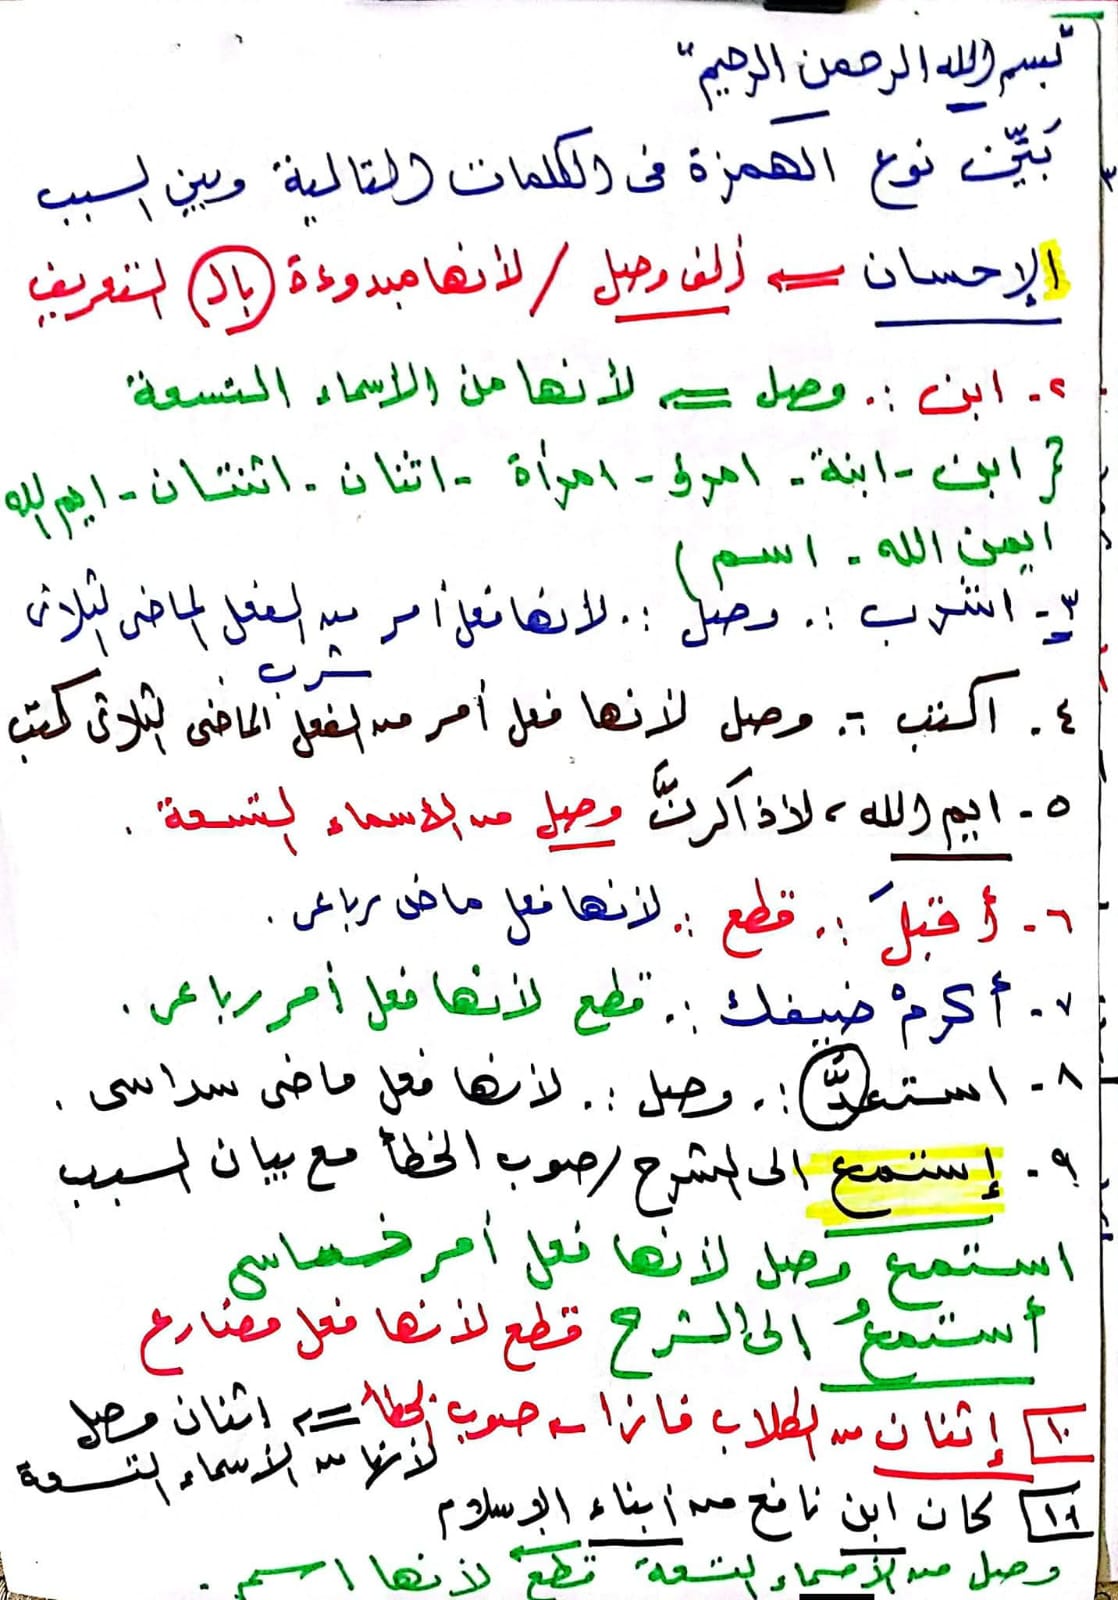 "بسم الله الرحمن الرحيم"
بَيِّن نوع الهمزة فى الكلمات التالية وبين السبب
الإحسان ⇐ ألف وصل / لأنها مبدوءة (بال) التعريف
٢- ابن ∴ وصل ⇐ لأنها من الأسماء التسعة
{ ابن - ابنة - امرؤ - امرأة - اثنان - اثنتان - ايم الله
ايمن الله - اسم )
٣- اشرب ∴ وصل ∴ لأنها فعل أمر من الفعل الماضى الثلاثى
شرب
٤- اكتب ∴ وصل لأنها فعل أمر من الفعل الماضى الثلاثى كتب
٥- ايم الله ، لاذاكرنَّ وصل من الأسماء التسعة .
٦- أقبلَ ∴ قطع ∴ لأنها فعل ماضى رباعى .
٧- أكرمْ ضيفك ∴ قطع لأنها فعل أمر رباعى .
٨- استعدَّ ∴ وصل ∴ لأنها فعل ماضى سداسى .
٩- إستمع الى الشرح / صوب الخطأ مع بيان السبب
استمع وصل لأنها فعل أمر خماسى
أستمعُ إلى الشرح قطع لأنها فعل مضارع
١٠ إثنان من الطلاب فازا - صوب الخطأ ⇐ اثنان وصل
لأنها من الأسماء التسعة
١١ كان ابن نافع من أبناء الإسلام
وصل من الأسماء التسعة قطع لأنها اسم .